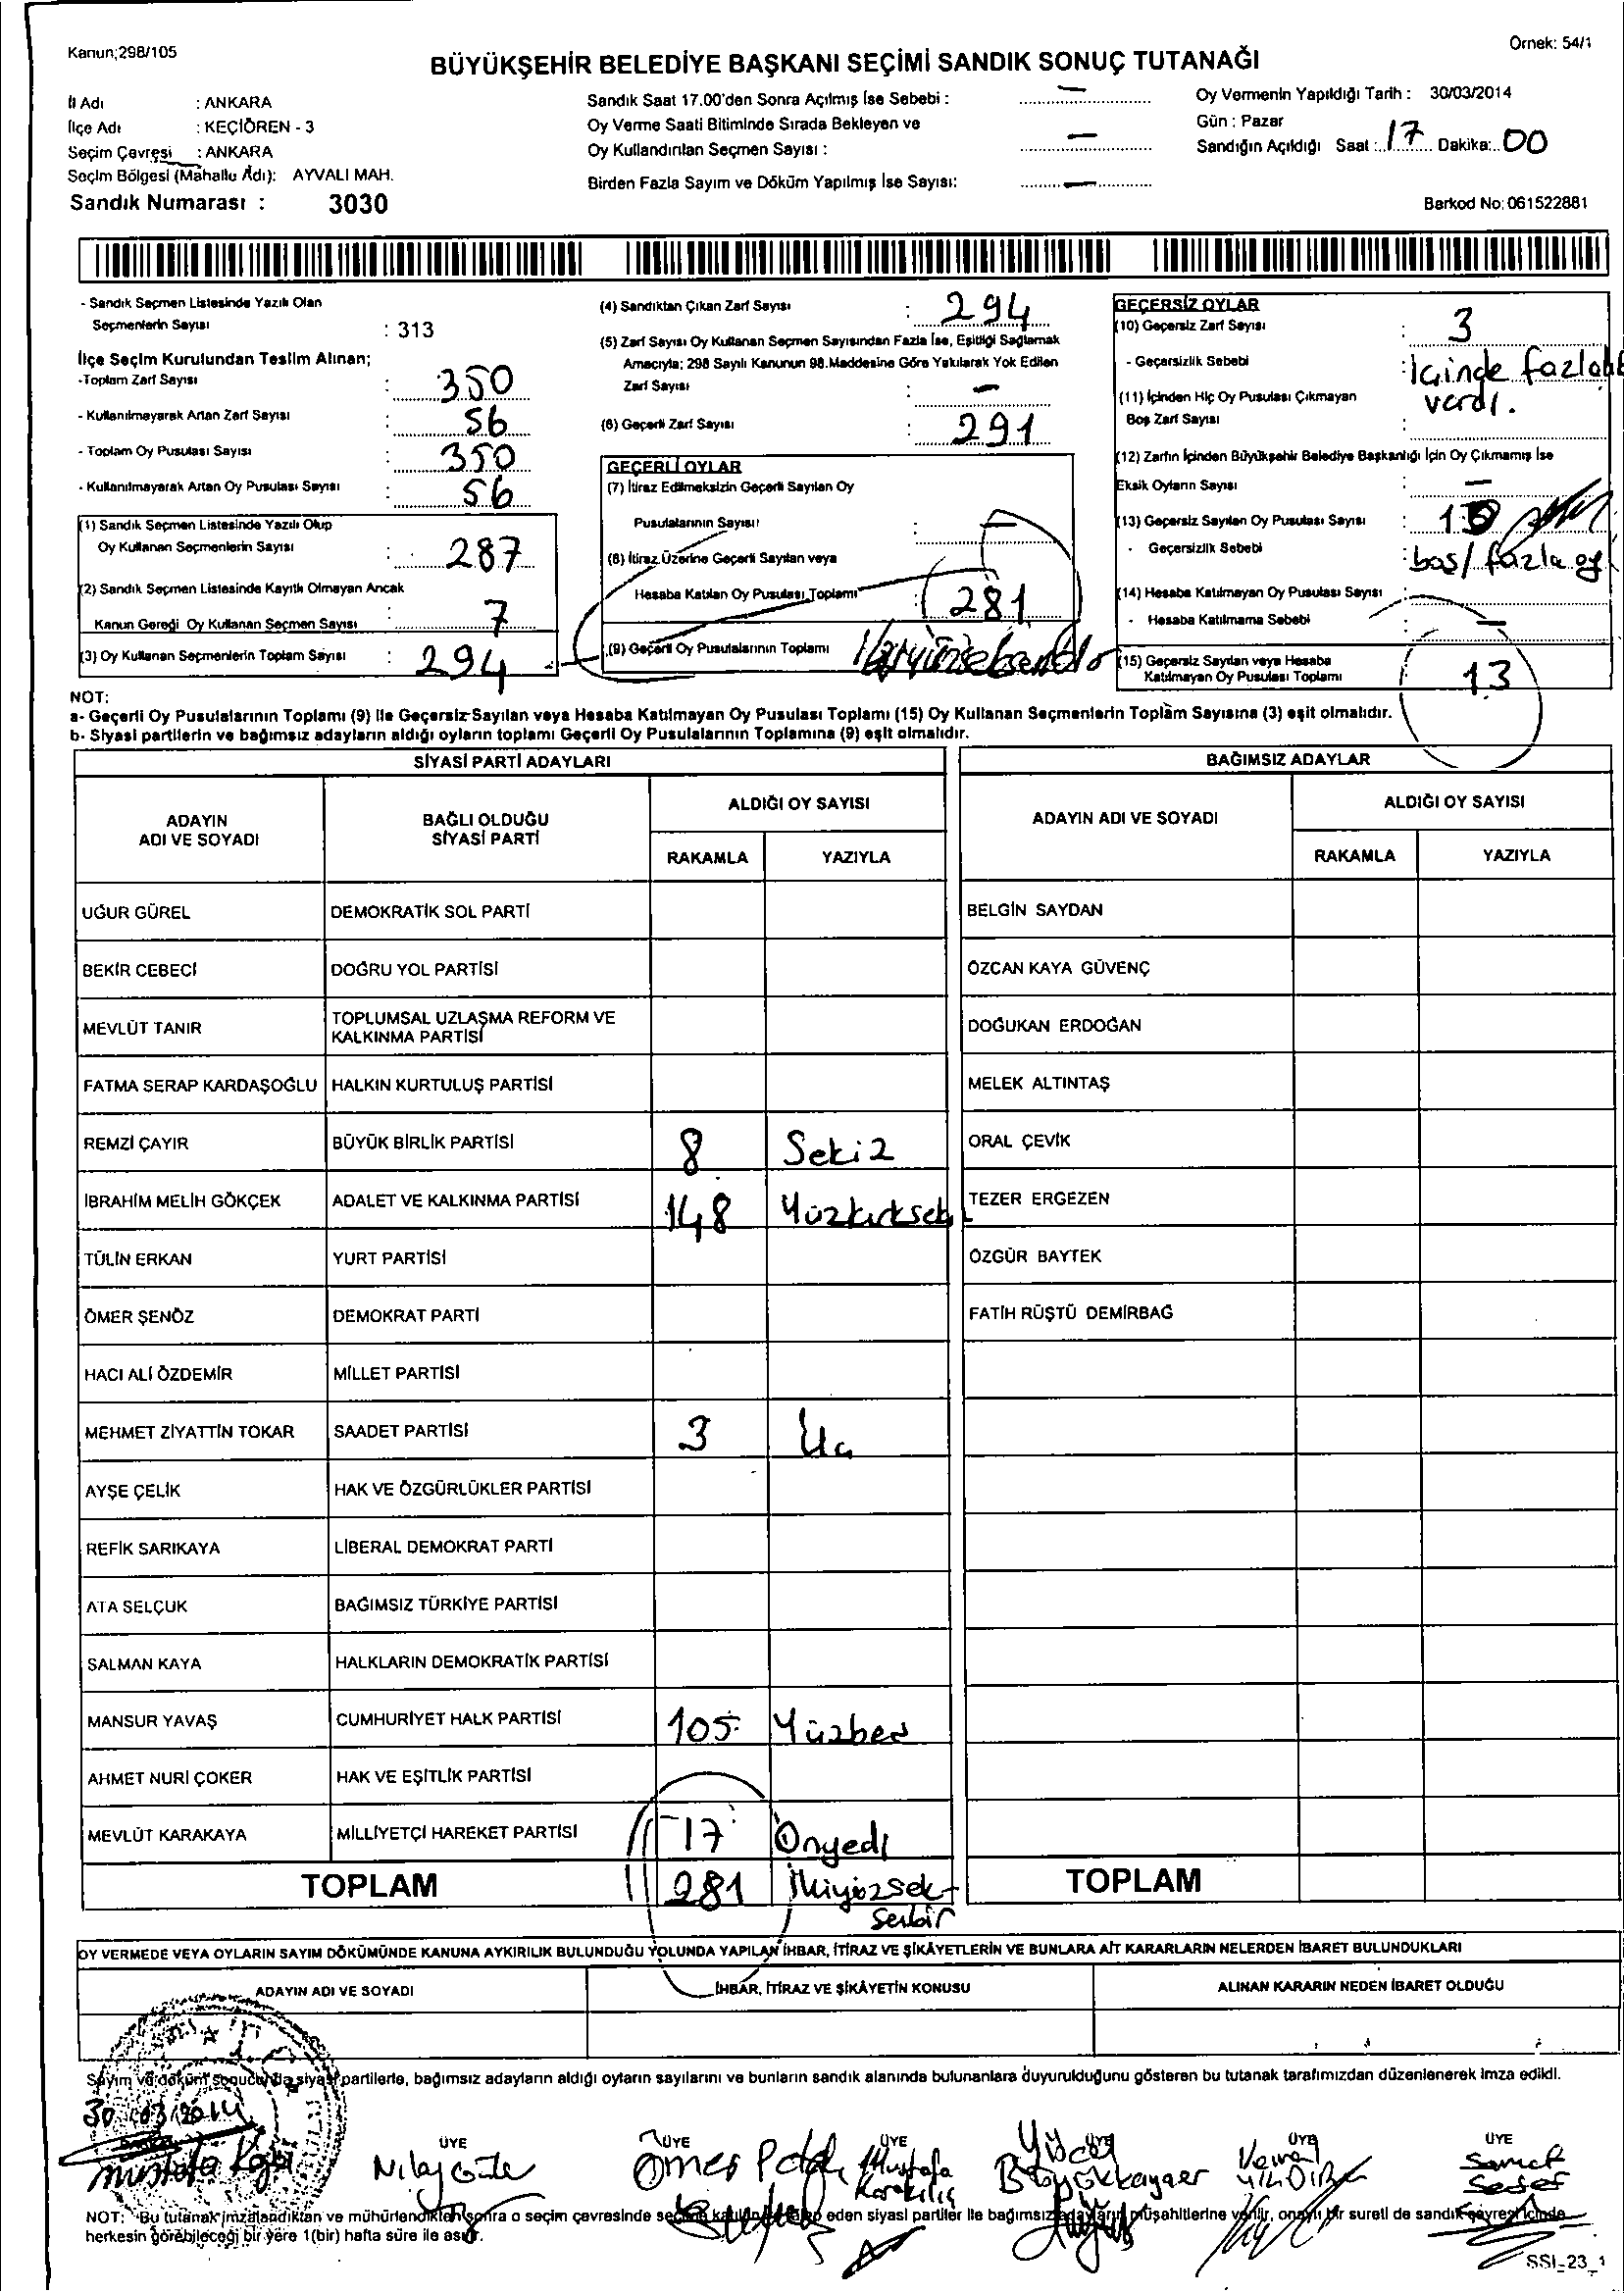 Kanun;298/105
Örnek: 54/1
BÜYÜKŞEHİR BELEDİYE BAŞKANI SEÇİMİ SANDIK SONUÇ TUTANAĞI
İl Adı : ANKARA
İlçe Adı : KEÇİÖREN - 3
Seçim Çevresi : ANKARA
Seçim Bölgesi (Mahalle Adı): AYVALI MAH.
Sandık Numarası : 3030
Sandık Saat 17.00'den Sonra Açılmış İse Sebebi : —
Oy Verme Saati Bitiminde Sırada Bekleyen ve
Oy Kullandırılan Seçmen Sayısı : —
Birden Fazla Sayım ve Döküm Yapılmış İse Sayısı: —
Oy Vermenin Yapıldığı Tarih : 30/03/2014
Gün : Pazar
Sandığın Açıldığı Saat : 17 Dakika: 00
Barkod No: 061522881
- Sandık Seçmen Listesinde Yazılı Olan
Seçmenlerin Sayısı : 313
İlçe Seçim Kurulundan Teslim Alınan;
-Toplam Zarf Sayısı : 350
- Kullanılmayarak Artan Zarf Sayısı : 56
- Toplam Oy Pusulası Sayısı : 350
- Kullanılmayarak Artan Oy Pusulası Sayısı : 56
(1) Sandık Seçmen Listesinde Yazılı Olup
Oy Kullanan Seçmenlerin Sayısı : 287
(2) Sandık Seçmen Listesinde Kayıtlı Olmayan Ancak
Kanun Gereği Oy Kullanan Seçmen Sayısı : 7
(3) Oy Kullanan Seçmenlerin Toplam Sayısı : 294
(4) Sandıktan Çıkan Zarf Sayısı : 294
(5) Zarf Sayısı Oy Kullanan Seçmen Sayısından Fazla İse, Eşitliği Sağlamak
Amacıyla; 298 Sayılı Kanunun 98.Maddesine Göre Yakılarak Yok Edilen
Zarf Sayısı : —
(6) Geçerli Zarf Sayısı : 291
GEÇERLİ OYLAR
(7) İtiraz Edilmeksizin Geçerli Sayılan Oy
Pusulalarının Sayısı : —
(8) İtiraz Üzerine Geçerli Sayılan veya
Hesaba Katılan Oy Pusulası Toplamı : 281
(9) Geçerli Oy Pusulalarının Toplamı
GEÇERSİZ OYLAR
(10) Geçersiz Zarf Sayısı : 3
- Geçersizlik Sebebi : İçinde fazla
vardı.
(11) İçinden Hiç Oy Pusulası Çıkmayan
Boş Zarf Sayısı :
(12) Zarfın İçinden Büyükşehir Belediye Başkanlığı İçin Oy Çıkmamış İse
Eksik Oyların Sayısı : —
(13) Geçersiz Sayılan Oy Pusulası Sayısı :
- Geçersizlik Sebebi : boş/ fazla oy
(14) Hesaba Katılmayan Oy Pusulası Sayısı :
- Hesaba Katılmama Sebebi : —
(15) Geçersiz Sayılan veya Hesaba
Katılmayan Oy Pusulası Toplamı 13
NOT:
a- Geçerli Oy Pusulalarının Toplamı (9) İle Geçersiz Sayılan veya Hesaba Katılmayan Oy Pusulası Toplamı (15) Oy Kullanan Seçmenlerin Toplam Sayısına (3) eşit olmalıdır.
b- Siyasi partilerin ve bağımsız adayların aldığı oyların toplamı Geçerli Oy Pusulalarının Toplamına (9) eşit olmalıdır.
SİYASİ PARTİ ADAYLARI
BAĞIMSIZ ADAYLAR
ADAYIN
ADI VE SOYADI
BAĞLI OLDUĞU
SİYASİ PARTİ
ALDIĞI OY SAYISI
RAKAMLA YAZIYLA
ADAYIN ADI VE SOYADI
ALDIĞI OY SAYISI
RAKAMLA YAZIYLA
UĞUR GÜREL DEMOKRATİK SOL PARTİ BELGİN SAYDAN
BEKİR CEBECİ DOĞRU YOL PARTİSİ ÖZCAN KAYA GÜVENÇ
MEVLÜT TANIR TOPLUMSAL UZLAŞMA REFORM VE
KALKINMA PARTİSİ DOĞUKAN ERDOĞAN
FATMA SERAP KARDAŞOĞLU HALKIN KURTULUŞ PARTİSİ MELEK ALTINTAŞ
REMZİ ÇAYIR BÜYÜK BİRLİK PARTİSİ 8 Sekiz ORAL ÇEVİK
İBRAHİM MELİH GÖKÇEK ADALET VE KALKINMA PARTİSİ 148 Yüzkırksek TEZER ERGEZEN
TÜLİN ERKAN YURT PARTİSİ ÖZGÜR BAYTEK
ÖMER ŞENÖZ DEMOKRAT PARTİ FATİH RÜŞTÜ DEMİRBAĞ
HACI ALİ ÖZDEMİR MİLLET PARTİSİ
MEHMET ZİYATTİN TOKAR SAADET PARTİSİ 3 Üç
AYŞE ÇELİK HAK VE ÖZGÜRLÜKLER PARTİSİ
REFİK SARIKAYA LİBERAL DEMOKRAT PARTİ
ATA SELÇUK BAĞIMSIZ TÜRKİYE PARTİSİ
SALMAN KAYA HALKLARIN DEMOKRATİK PARTİSİ
MANSUR YAVAŞ CUMHURİYET HALK PARTİSİ 105 Yüzbeş
AHMET NURİ ÇOKER HAK VE EŞİTLİK PARTİSİ
MEVLÜT KARAKAYA MİLLİYETÇİ HAREKET PARTİSİ 17 Onyedi
TOPLAM 281 İkiyüzsek-
senbir
TOPLAM
OY VERMEDE VEYA OYLARIN SAYIM DÖKÜMÜNDE KANUNA AYKIRILIK BULUNDUĞU YOLUNDA YAPILAN İHBAR, İTİRAZ VE ŞİKÂYETLERİN VE BUNLARA AİT KARARLARIN NELERDEN İBARET BULUNDUKLARI
ADAYIN ADI VE SOYADI İHBAR, İTİRAZ VE ŞİKÂYETİN KONUSU ALINAN KARARIN NEDEN İBARET OLDUĞU
Sayım ve döküm sonucunda siyasi partilerle, bağımsız adayların aldığı oyların sayılarını ve bunların sandık alanında bulunanlara duyurulduğunu gösteren bu tutanak tarafımızdan düzenlenerek imza edildi.
30/03/2014
ÜYE ÜYE ÜYE ÜYE ÜYE ÜYE
Mustafa Nilay Ömer Mustafa Karakılıç Yücel Büyükkayaer Kemal Samet
NOT: Bu tutanak imzalandıktan ve mühürlendikten sonra o seçim çevresinde seçime katılan eden siyasi partiler ile bağımsız adayların müşahitlerine verilir, onaylı bir sureti de sandık çevresi içinde
herkesin görebileceği bir yere 1(bir) hafta süre ile asılır.
SSI_23_1